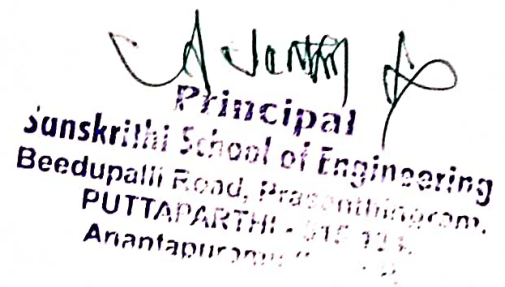 Principal
Sanskrithi School of Engineering
Beedupalli Road, Prasanthinigram,
PUTTAPARTHI - 515 134.